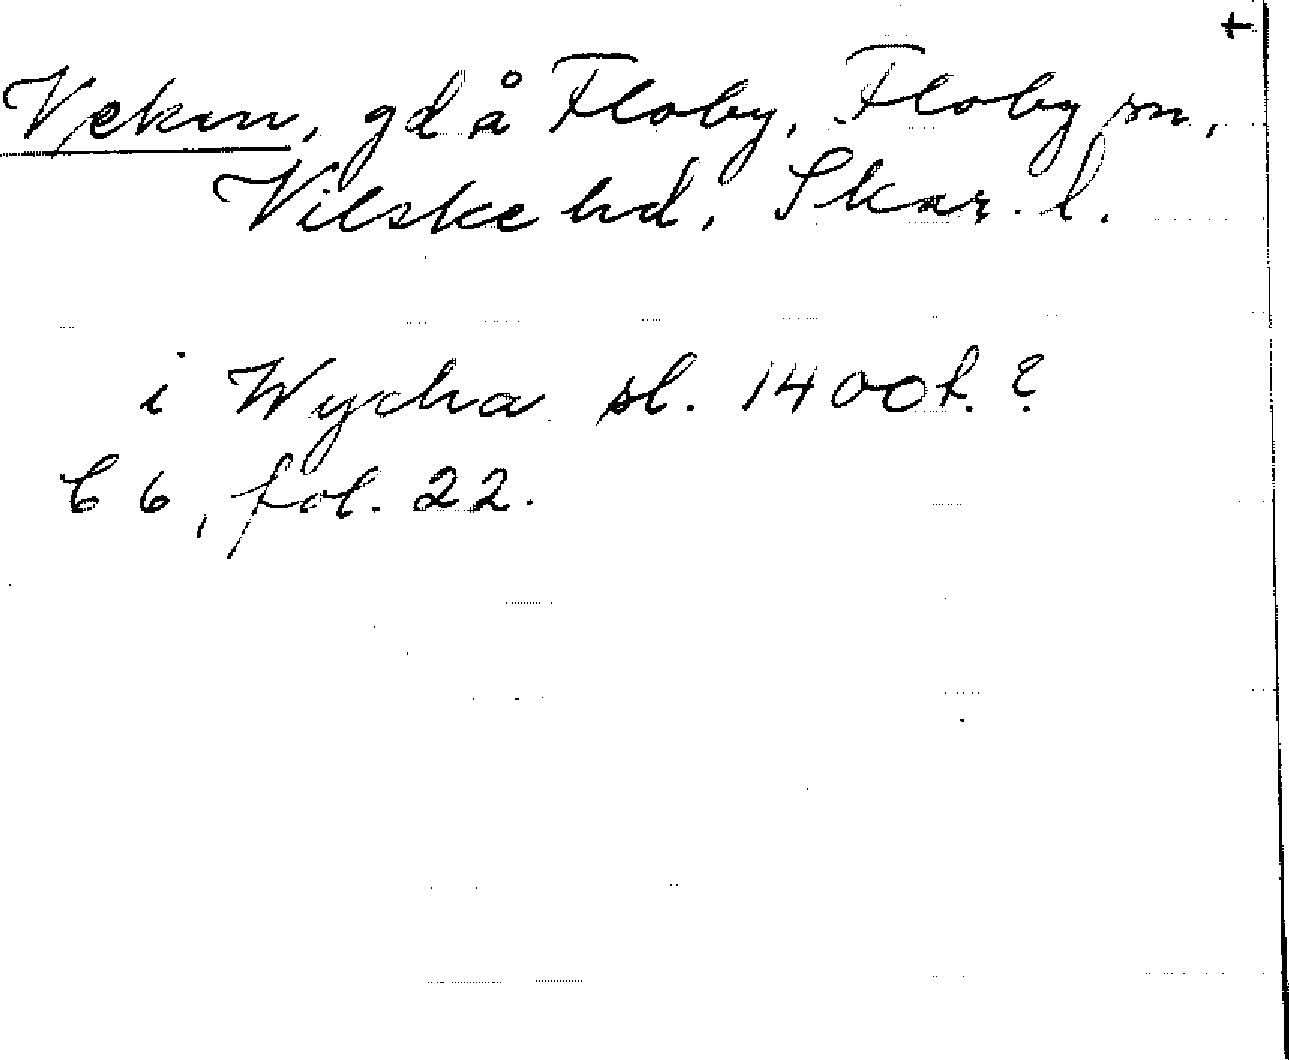 †
Veken, gd å Floby, Floby sn,
Vilske hd, Skar. l.
i Wycha sl. 1400t.?
C 6, fol. 22.